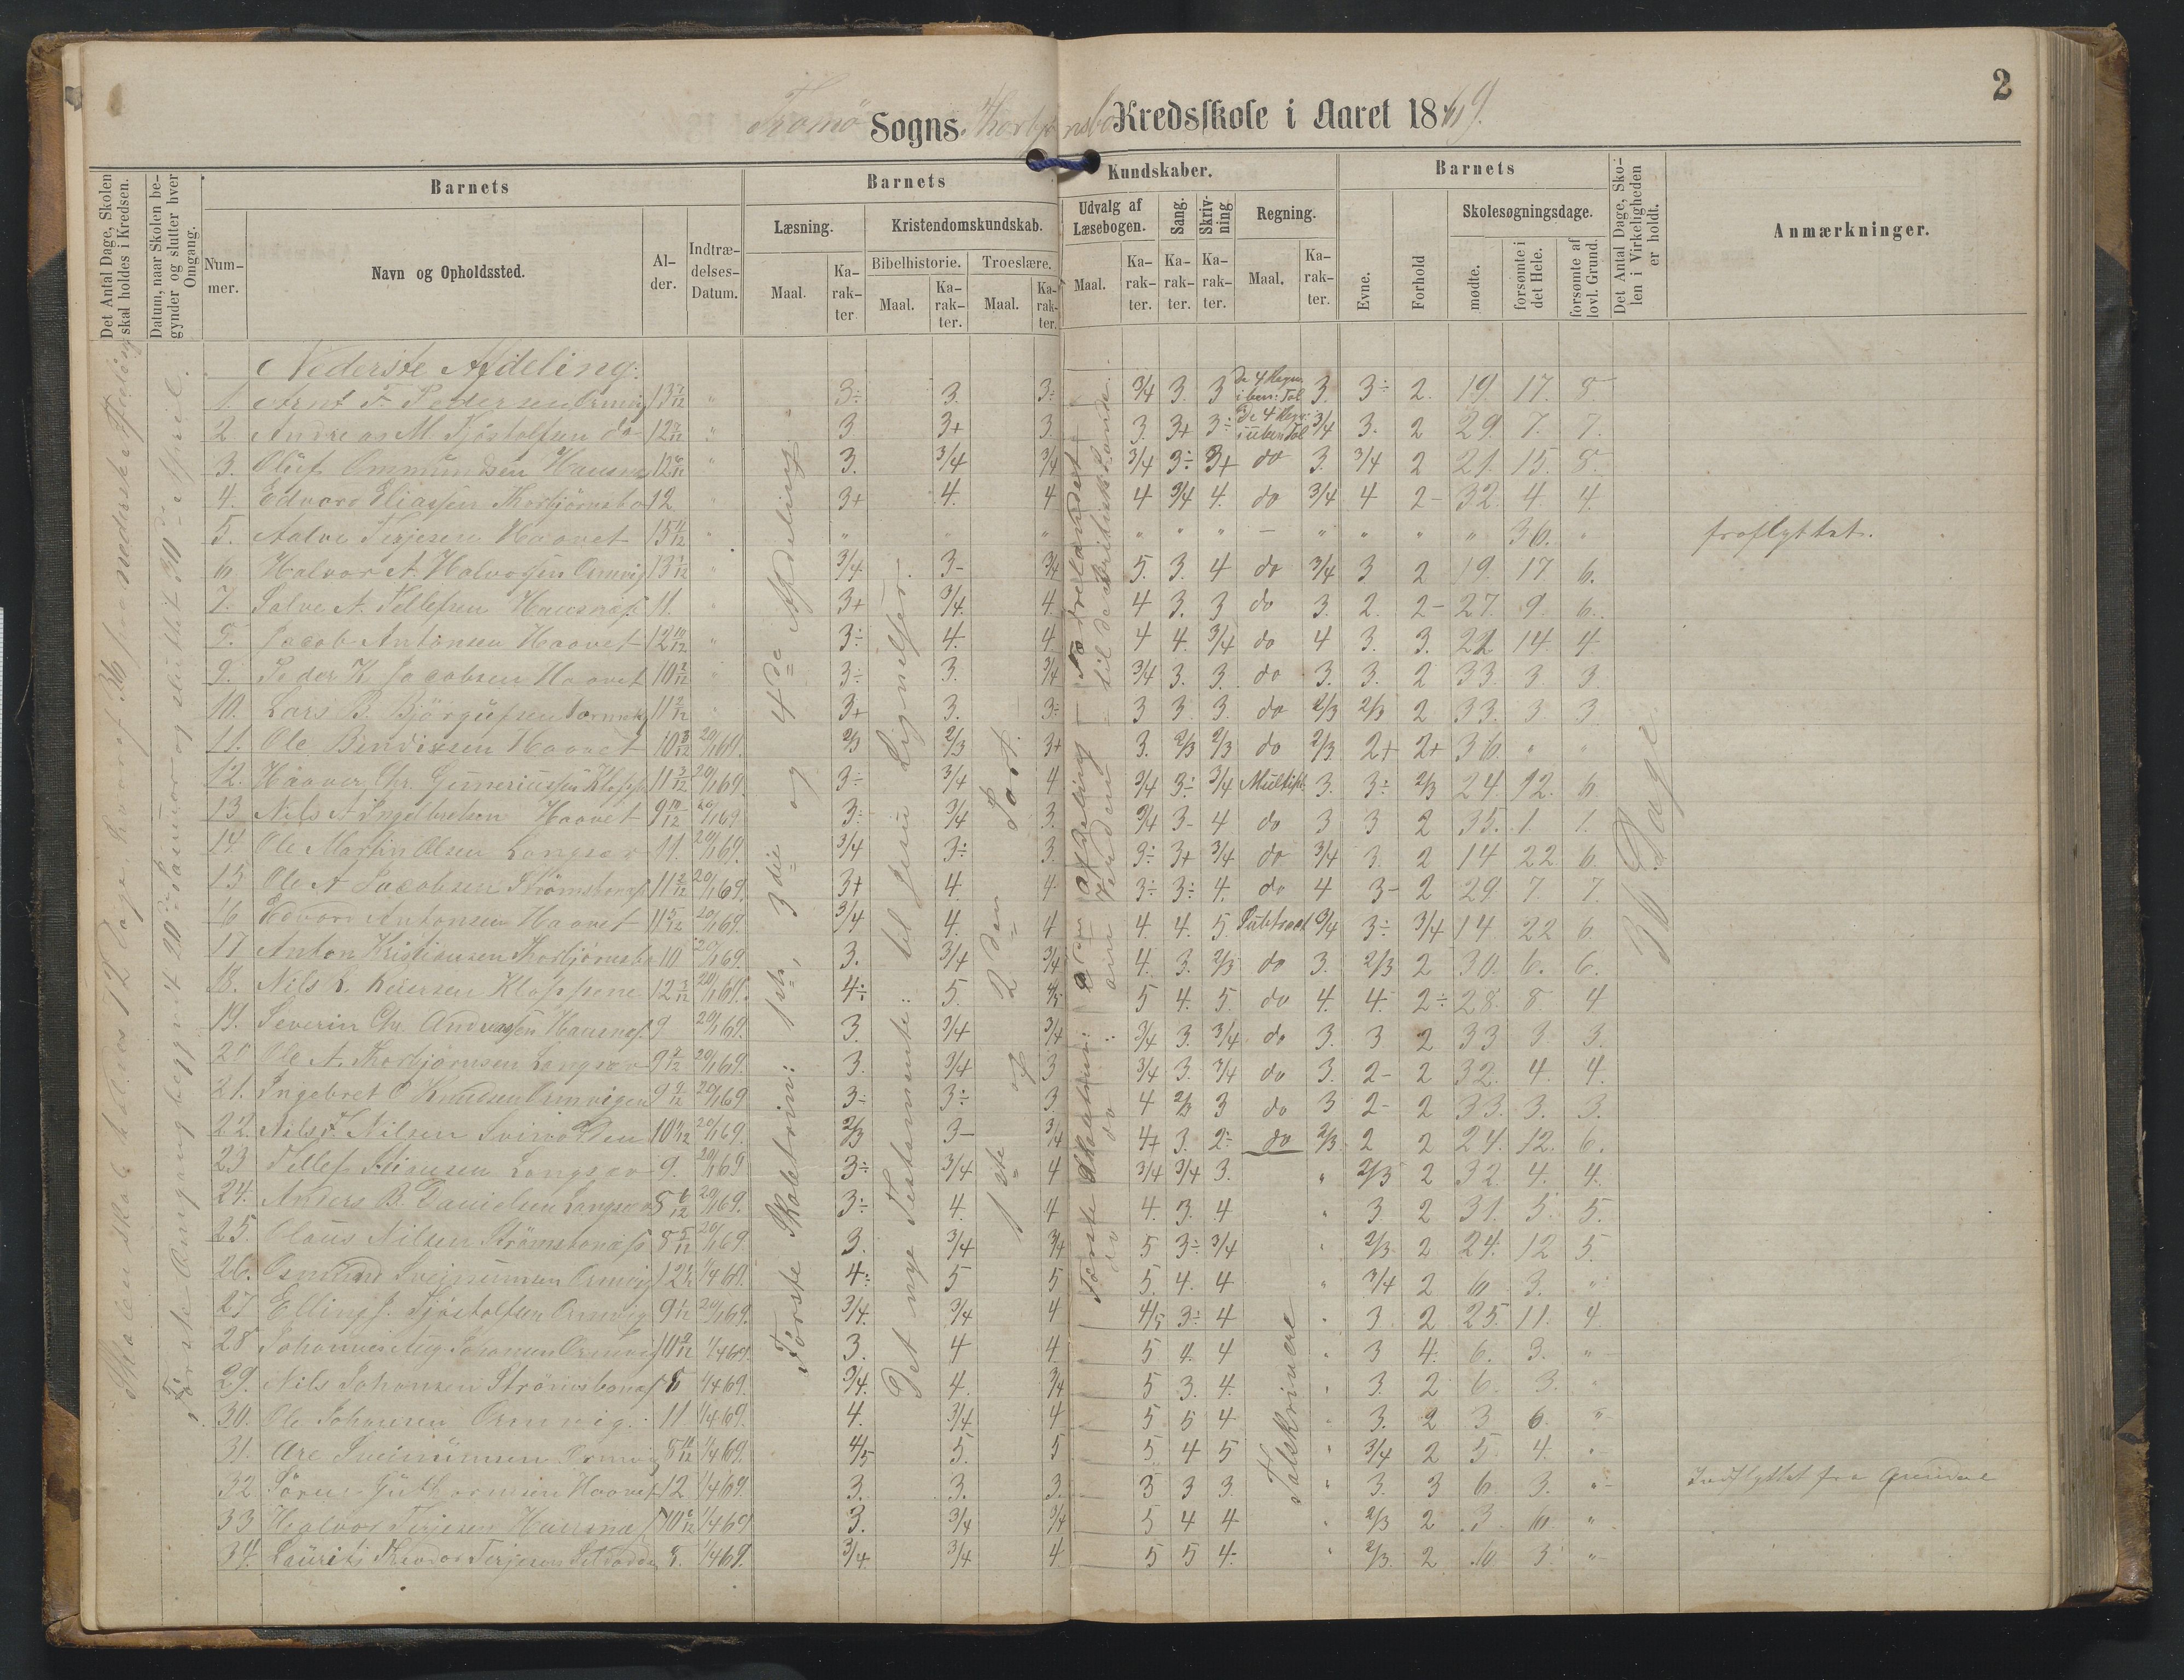 2
Tromø Sogns Thorbjørnsbo Kredsskole i Aaret 1869.
Det Antal Dage, Skolen skal holdes i Kredsen.
Datum, naar Skolen begynder og slutter hver Omgang.
Barnets
Nummer.
Navn og Opholdssted.
Alder.
Indtrædelses-Datum.
Barnets Kundskaber.
Læsning.
Maal.
Karakter
Kristendomskundskab.
Bibelhistorie.
Maal.
Karakter.
Troeslære.
Maal.
Karakter.
Udvalg af Læsebogen.
Maal.
Karakter.
Sang.
Karakter.
Skrivning
Karakter.
Regning.
Maal.
Karakter.
Barnets
Evne.
Forhold
Skolesøgningsdage.
mødte.
forsømte i det Hele.
forsømte af lovl. Grund.
Det Antal Dage, Skolen i Virkeligheden er holdt.
Anmærkninger.
Første Omgang begyndt 20de Januar og sluttet 30d April.
Første Skoletrin: 1ste, 3die og 4de Afdeling
Det nye Testamente: til Jesu Lignelser.
1ste og 2den Part.
36 Dage.
Talskrivere
Nederste Afdeling:
1. Arnt F. Pedersen Ormvig 13 " 3÷ 3. 3÷ 3/4 3. 3 De 4 Regn. i ben: Tal 3. 3÷ 2. 19. 17. 8
2 Andreas M. Tjøstolfsen do 12 " 3 3+ 3. 3. 3+ 3÷ De 4 Regn: i uben Tal 3/4 3. 2 29. 7. 7.
3. Oluf Ommundsen Hausnæs 12 " 3. 3/4 3/4 3/4 3÷ 3+ do 3. 3/4 2 21. 15. 8.
4. Edvard Eliassen Thorbjörnsbo 12 " 3+ 4. 4 4 3/4 4. do 3/4 4 2- 32. 4. 4.
5. Aalve Terjesen Haavet 15 " " " " " " " - " " " " 36. " fraflyttet.
6 Halvor A. Halvorsen Ormvig 13 " 3/4 3- 3/4 5. 3. 4 do 3/4 3 2 19. 17 6.
7. Salve A. Tellefsen Hausnæs 11. " 3+ 3/4. 4. 4 3. 3 do 3. 2. 2- 27. 9. 6.
8. Jacob Antonsen Haavet 12 10/12 " 3÷ 4. 4. 4 4. 3/4 do 4 3. 3. 22 14. 4.
9. Peder K. Jacobsen Haavet 10 " 3÷ 3. 3/4 3/4 3. 3. do 3. 3. 2 33. 3. 3.
10. Lars B. Björgufsen 11 " 3+ 3. 3÷ 3 3. 3. do 2/3 2/3 2 33. 3. 3
11. Ole Bendixsen Haavet 10 20/1 69. 2/3 2/3 3+ 3. 2/3 2/3 do 2/3. 2+ 2+ 36. " "
12. Haaver Chr. Gunerinssen Klopp. 11 20/1 69. 3÷ 3/4 4 3/4 3÷ 3/4 Multipl. 3. 3÷ 2/3 24. 12. 6.
13 Nils A Ingebretsen Haavet 9 10/12 20/1 69 3÷ 3/4 3. 3/4 3- 4 do 3 3 2 35. 1. 1.
14. Ole Martin Olsen Langsæv 11. 20/1 69. 3/4 3÷ 3. 3÷ 3+ 3/4 do 3/4 3. 2 14 22 6.
15 Ole A Jacobsen Strömsbonæs 11 20/1 69. 3+ 4. 4 3÷ 3÷ 4. do 4 3- 2 29. 7 7.
16 Edvard Antonsen Haavet 11 20/1 69. 3/4 4. 4 4. 4. 5. Subtract 3/4 3÷ 3/4 14. 22 6.
17 Anton Kristiansen Thorbjörnsbo 10 20/1 69. 3. 3/4 3/4 4. 3. 2/3 do 3. 2/3 2 30. 6. 6.
18. Nils L. Kiersen Kloppene 12 20/1 69. 4÷ 5. 4/5 5 4. 5. do 4. 4. 2÷ 28. 8 4
19. Severin Chr. Andreassen Hausnæs. 9 20/1 69. 3. 3/4 3/4 3/4 3. 3/4 do 3. 3 2 33 3 3.
20 Ole A. Thorbjørnsen Langsæv 9 20/1 69. 3. 3/4 3 3/4 3. 3/4 do 3. 2- 2 32. 4. 4.
21. Ingebret O Knudsen Ormvigen 9 20/1 69 3÷ 3÷ 3. 4 2/3 3 do 3 2- 2 33. 3. 3.
22. Nils F. Nilsen Svinodden 10 20/1 69. 2/3 3- 3/4 4+ 3. 2÷ do 2/3. 2 2 24. 12. 6.
23 Tellef Langsæv 9. 20/1 69 3÷ 3/4 4 3/4 3/4 3. " 2/3 2 32. 4. 4.
24. Anders B. Danielsen Langsæv 8 20/1 69. 3÷ 4. 4 4. 3. 4 " 3 2 31. 5. 5.
25. Olaus Nilsen Strömsbonæs 8 20/1 69. 3. 3/4 3/4 5 3÷ 3/4 " 2/3. 2 24. 12 5.
26. Osmund Sveinumsen Ormvig 12 1/4 69. 4÷ 5 5 5. 4. 4 " 3/4 2 6 3. "
27 Elling J. Tjøstolfsen Ormvig 9 20/1 69. 3/4. 3/4 4 4/5 3÷ 4 " 3. 2 25. 11. 4.
28 Johannes Aug. Johansen Ormvig 10 1/4 69. 3. 4 4. 5 4. 4 " 3 4. 6. 3. "
29. Nils Johansen Strömsbonæs 8 1/4 69. 3/4. 4. 3/4 5 3. 4. " 3. 2 6. 3. "
30. Ole Johansen Ormvig. 11 1/4 69. 4. 3/4 4 5 5 4 " 3. 2 3 6. "
31. Are Sveinumsen Ormvig 8 1/4 69. 4/5 5. 5 5. 4 5 " 3/4 2 5. 4. "
32 Sören Guthormsen Haavet 12 1/4 69. 3. 3. 3. 3 3 3. " 3. 3 6. 3. " Indflyttet fra Arendal
33 Halvor Terjesen Hausnæs 10 1/4 69 3. 3/4 3/4 5 4 4 " 2/3 2 3 6. "
34. Lauritz Theodor Terjesen 8. 1/4 69. 3/4. 3/4 4 5 5 4. " 2/3. 2 6 3. "